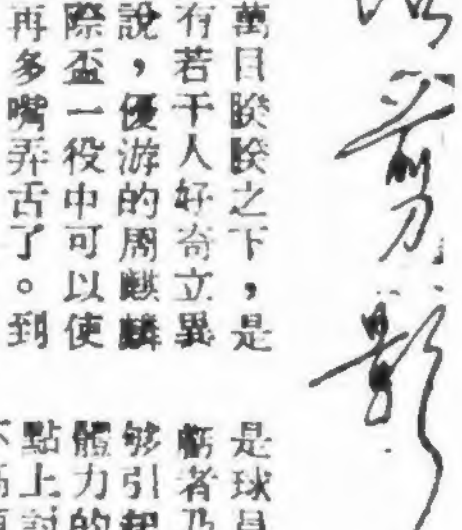 剪影
萬目睽睽之下,是
有若干人好奇立異
說,優游的周麒麟
際盃一役中可以使
再多嘴弄舌了。到
是球員
者乃
够引起
體力的
點上討